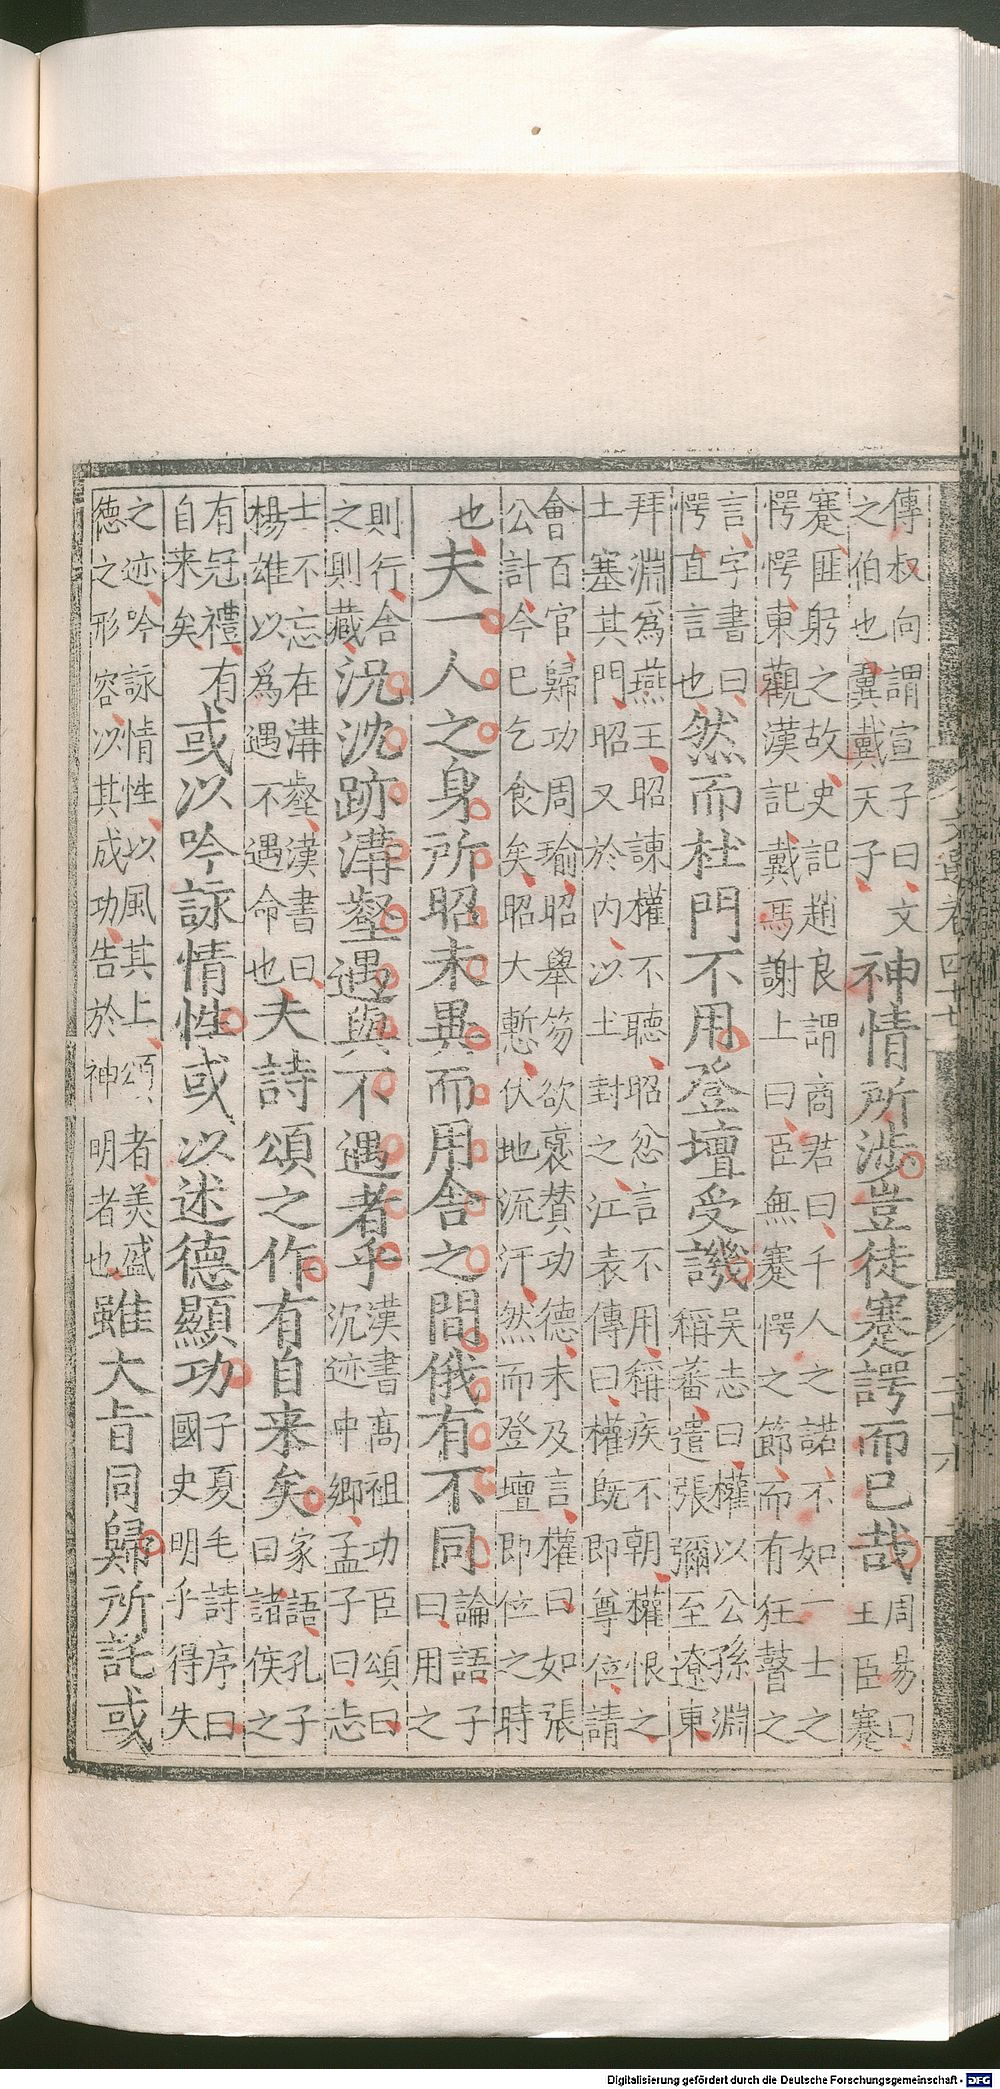 文選卷四十七
二十六
傳叔向謂宣子曰文
之伯也翼戴天子
神情所涉豈徒蹇諤而已哉
周易曰
王臣蹇
蹇匪躬之故史記趙良謂商君曰千人之諾不如一士之
愕愕東觀漢記戴馮謝上曰臣無蹇愕之節而有狂瞽之
言字書曰
愕直言也
然而杜門不用登壇受譏
吳志曰權以公孫淵
稱蕃遣張彌至遼東
拜淵爲燕王昭諫權不聽昭忿言不用稱疾不朝權恨之
土塞其門昭又於内以土封之江表傳曰權既即尊位請
會百官歸功周瑜昭舉笏欲褒贊功德未及言權曰如張
公計今已乞食矣昭大慙伏地流汗然而登壇即位之時
也
夫一人之身所昭未異而用舍之間俄有不同
論語子
曰用之
則行舍
之則藏
况沈跡溝壑遇與不遇者乎
漢書高祖功臣頌曰
沉迹中鄉孟子曰志
士不忘在溝壑漢書曰
楊雄以爲遇不遇命也
夫詩頌之作有自来矣
家語孔子
曰諸侯之
有冠禮有
自来矣
或以吟詠情性或以述德顯功
子夏毛詩序曰
國史明乎得失
之迹吟詠情性以風其上頌者美盛
德之形容以其成功告於神明者也
雖大旨同歸所託或
Digitalisierung gefördert durch die Deutsche Forschungsgemeinschaft - DFG